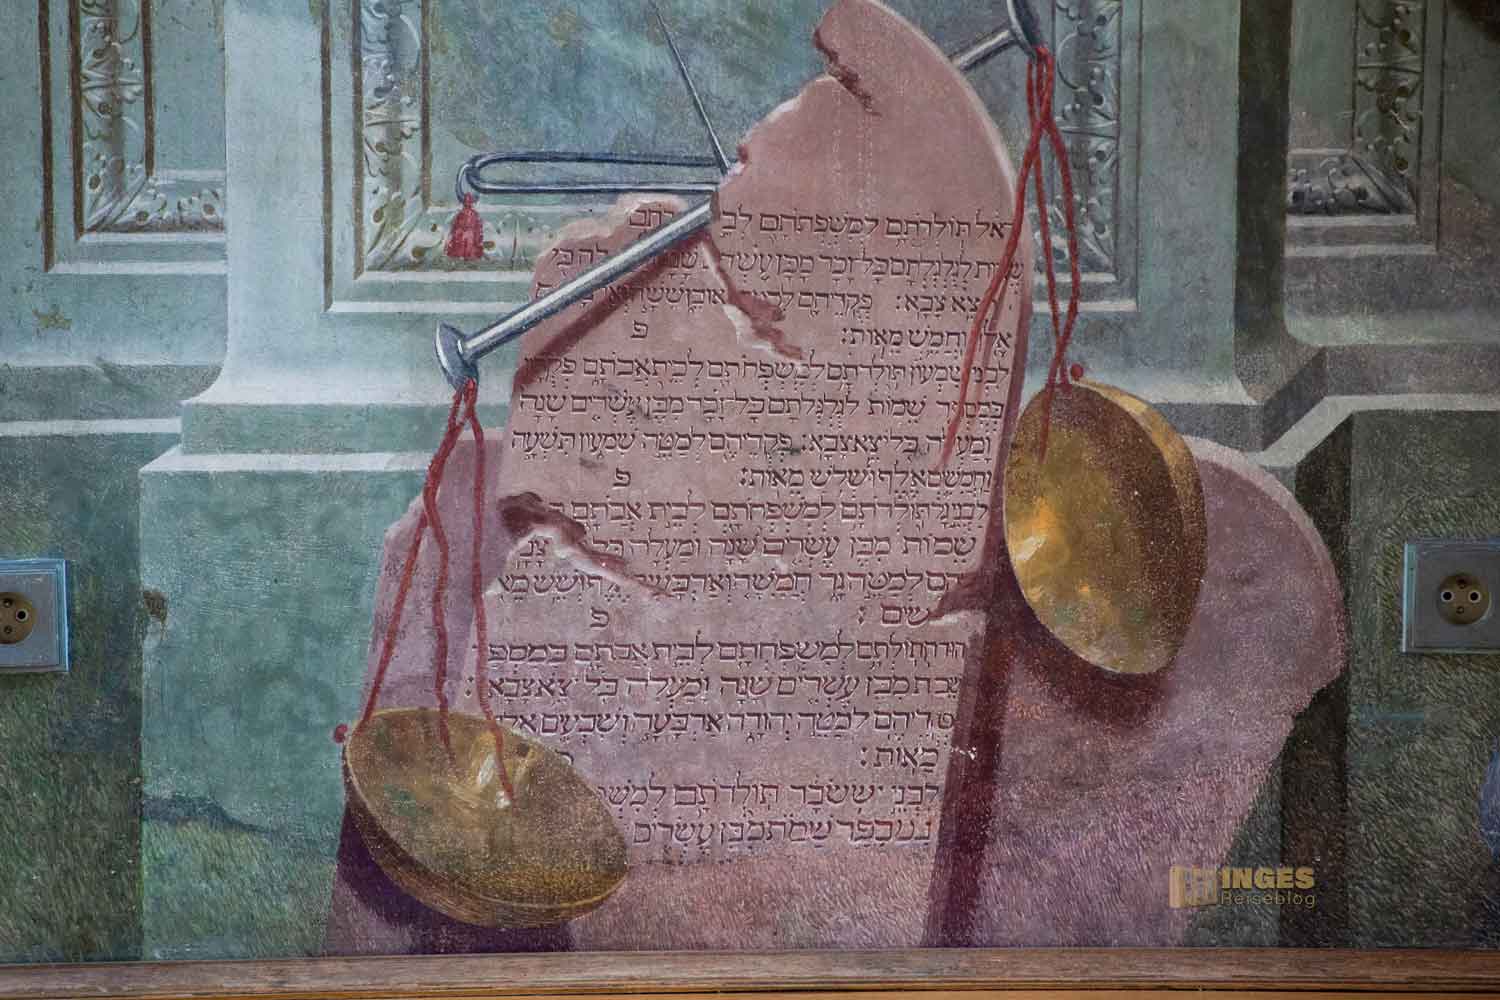 תּוֹלְדֹתָם לְמִשְׁפְּחֹתָם
לְגֻלְגְּלֹתָם כָּל זָכָר מִבֶּן עֶשְׂרִים
יֹצֵא צָבָא: פְּקֻדֵיהֶם
אֶלֶף וַחֲמֵשׁ מֵאוֹת: פ
לִבְנֵי שִׁמְעוֹן תּוֹלְדֹתָם לְמִשְׁפְּחֹתָם לְבֵית אֲבֹתָם פְּקֻדָיו
בְּמִסְפַּר שֵׁמוֹת לְגֻלְגְּלֹתָם כָּל זָכָר מִבֶּן עֶשְׂרִים שָׁנָה
וָמַעְלָה כֹּל יֹצֵא צָבָא: פְּקֻדֵיהֶם לְמַטֵּה שִׁמְעוֹן תִּשְׁעָה
וַחֲמִשִּׁים אֶלֶף וּשְׁלֹשׁ מֵאוֹת: פ
לִבְנֵי גָד תּוֹלְדֹתָם לְמִשְׁפְּחֹתָם לְבֵית אֲבֹתָם
שֵׁמוֹת מִבֶּן עֶשְׂרִים שָׁנָה וָמַעְלָה כֹּל
הֶם לְמַטֵּה גָד חֲמִשָּׁה וְאַרְבָּעִים אֶלֶף וְשֵׁשׁ מֵא
שִׁם: פ
לְמִשְׁפְּחֹתָם לְבֵית אֲבֹתָם בְּמִסְפַּ
מִבֶּן עֶשְׂרִים שָׁנָה וָמַעְלָה כֹּל יֹצֵא צָבָא:
לְמַטֵּה יְהוּדָה אַרְבָּעָה וְשִׁבְעִים אֶל
מֵאוֹת:
לִבְנֵי יִשָּׂשכָר תּוֹלְדֹתָם לְמִשְׁ
שֵׁמֹת מִבֶּן עֶשְׂרִים
INGES
Reiseblog